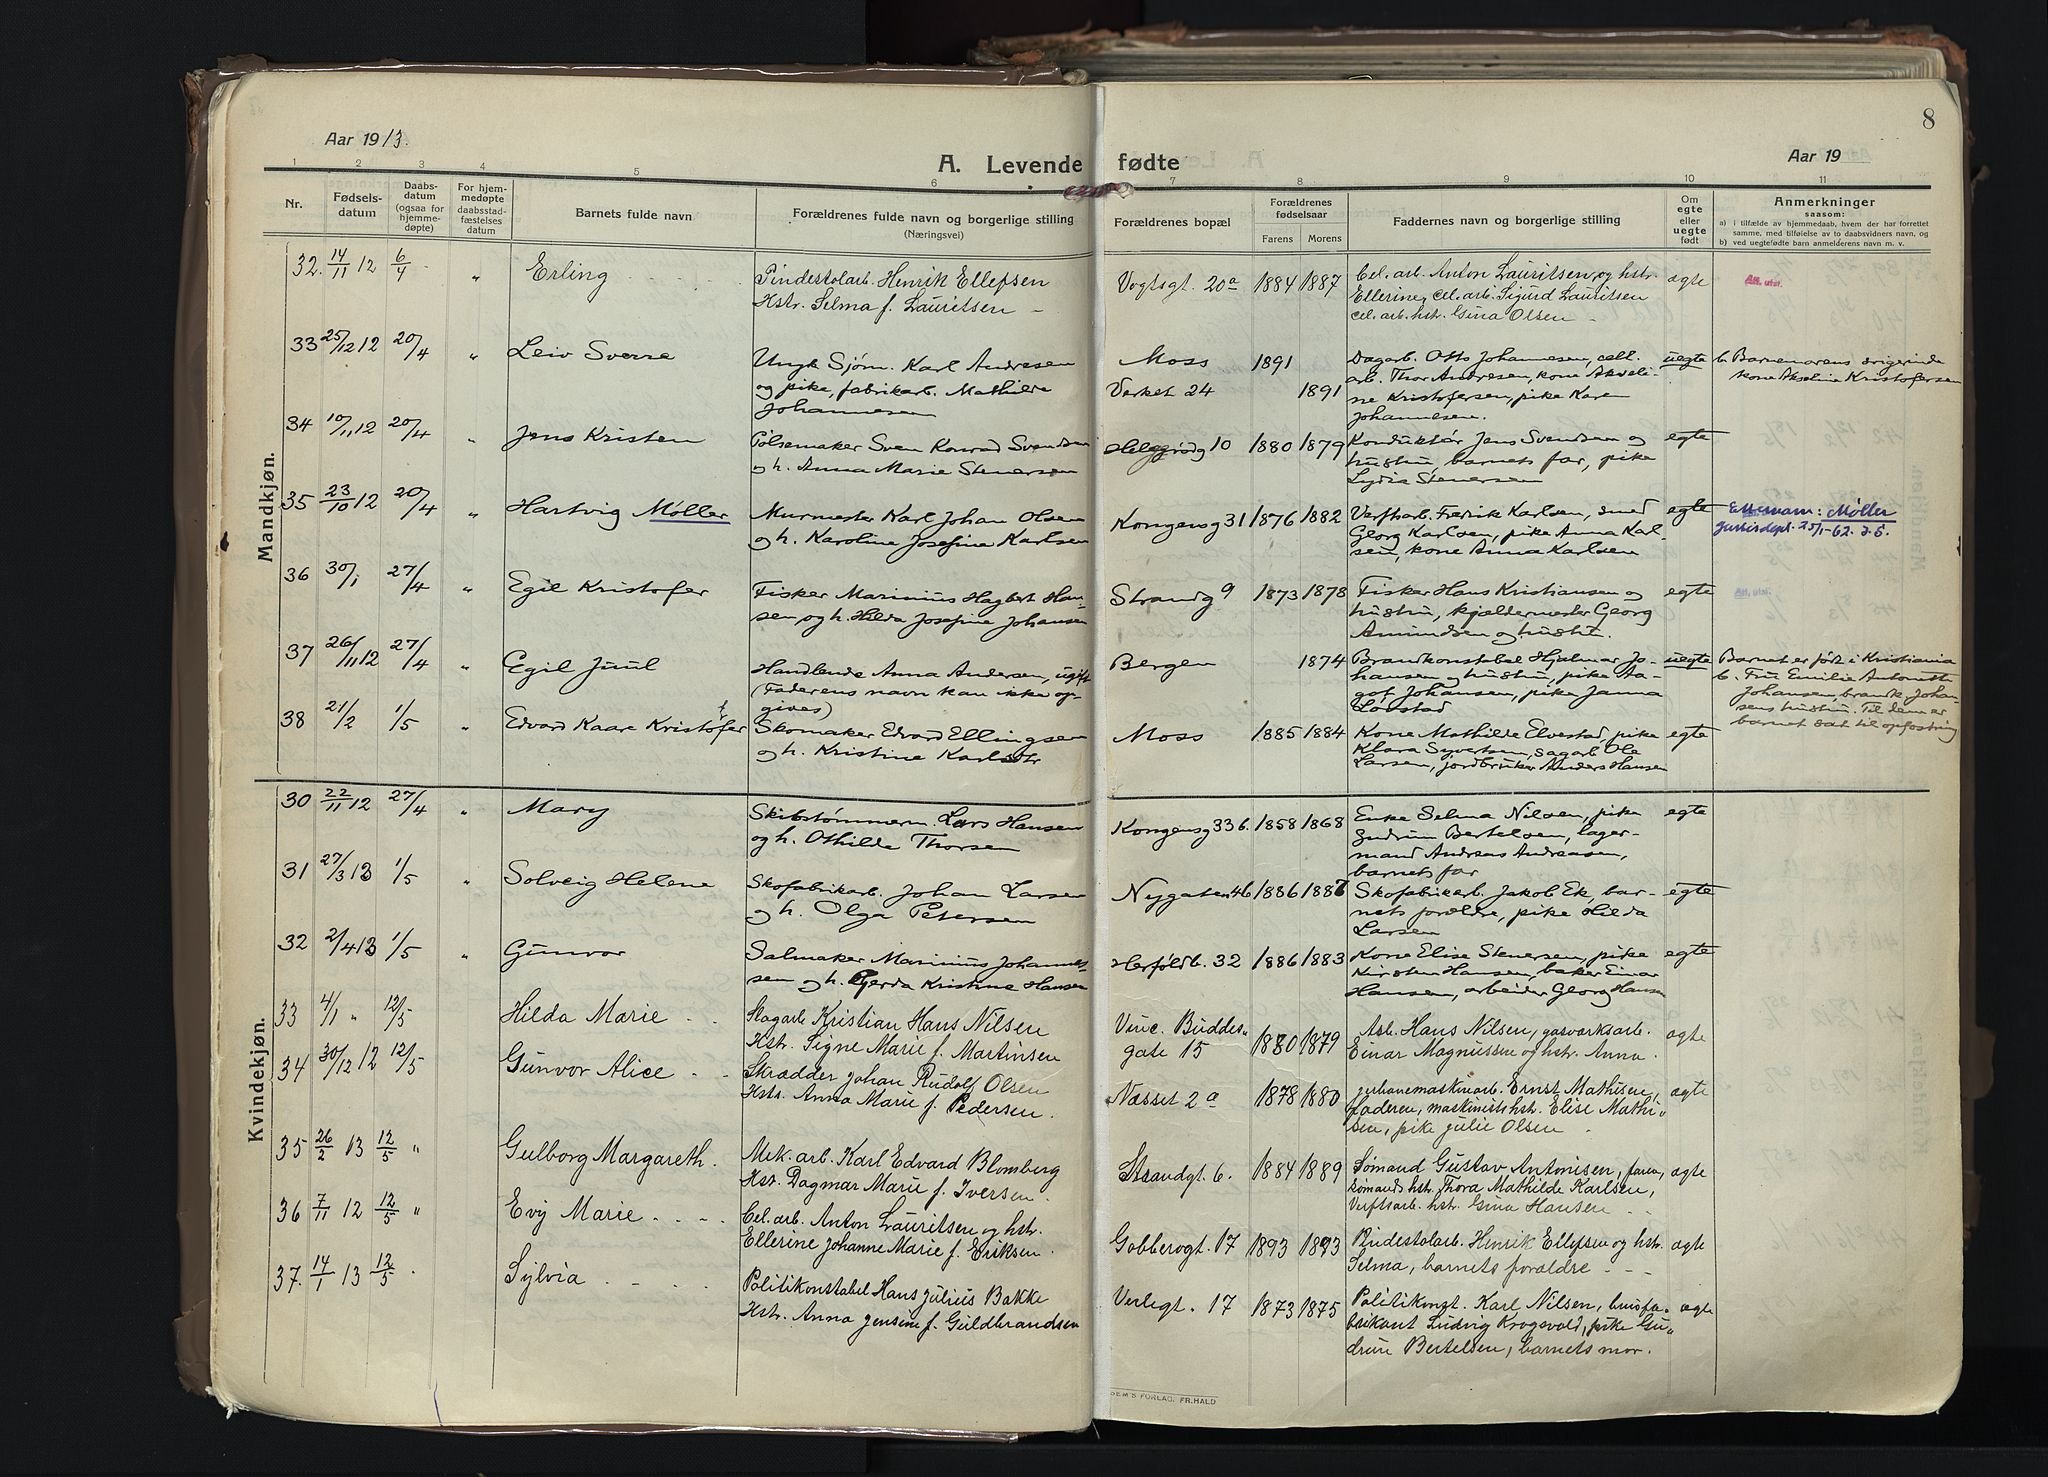 Aar 1913.
A. Levende fødte
Aar 19
8
1 2 3 4 5 6 7 8 9 10 11
Nr.
Fødsels-
datum
Daabs-
datum
(ogsaa for
hjemme-
døpte)
For hjem-
medøpte
daabsstad-
fæstelses
datum
Barnets fulde navn
Forældrenes fulde navn og borgerlige stilling
(Næringsvei)
Forældrenes bopæl
Forældrenes
fødselsaar
Farens Morens
Faddernes navn og borgerlige stilling
Om
egte
eller
uegte
født
Anmerkninger
saasom:
a) i tilfælde av hjemmedaab, hvem der har forrettet
samme, med tilføielse av to daabsvidners navn, og
b) ved uegtefødte barn anmelderens navn m. v.
Mandkjøn.
32. 14/11 12 6/4 " Erling Pindestolarb. Henrik Ellefsen Vogtsgt. 20a 1884 1887 Cel. arb. Anton Lauritsen og hstr. ægte Att. utst.
Hstr. Selma f. Lauritsen Ellerine, cel. arb. Sigurd Lauritsen
cel. arb. hstr. Gina Olsen
33 25/12 12 20/4 " Leiv Sverre Ungk. Sjøm. Karl Andresen Moss 1891 Dagarb. Otto Johannesen, cell. uegte b. Barnemorens svigerinde
og pike, fabrikarb. Mathilde Verket 24 1891 arb. Thor Andresen, kone Akveli- kone Akseline Kristofersen
Johannesen ne Kristofersen, pike Karen
Johannesen.
34 10/11 12 20/4 " Jens Kristen Pølsemaker Sven Konrad Svendsen Helgerødg 10 1880 1879 Konduktør Jens Svendsen og egte
og h. Anna Marie Stenersen hustru, barnets far, pike
Lydia Stenersen
35 23/10 12 20/4 " Hartvig Møller Murmester Karl Johan Olsen Kongensg 31 1876 1882 Verftarb. Fredrik Karlsen, smed egte Etternavn: Møller
og h. Karoline Josefine Karlsen Georg Karlsen, pike Anna Karl- Justisdept. 25/1-62. J.S.
sen, kone Anna Karlsen
36 30/1 27/4 " Egil Kristofer Fisker Marinius Hagbert Han- Strandg 9 1873 1878 Fisker Hans Kristiansen og egte Att. utst.
sen, og h. Hilda Josefine Johansen hustru, kjeldermester Georg
Amundsen og hustru.
37 26/11 12 27/4 " Egil Juul Handlende Anna Andersen, ugift Bergen 1874 Brandkonstabel Hjalmar Jo- uegte Barnet er født i Kristiania
(Faderens navn kan ikke op- hansen og hustru, pike Aa- b. Fru Emilie Antonette
gives) got Johansen, pike Janna Johansen, brandk. Johan-
Løvstad sens hustru. Til dem er
barnet sat til opfostring
38 21/2 1/5 " Edvard Kaare Kristofer Skomaker Edvard Ellingsen Moss 1885 1884 Kone Mathilde Elvestad, pike egte
og h. Kristine Karlsdtr Klara Syvertsen, sagarb. Ole
Larsen, jordbruker Anders Hansen
Kvindekjøn.
30 22/11 12 27/4 " Mary Skibstømmerm. Lars Hansen Kongensg 33 b. 1858 1868 Enke Selma Nilsen, pike egte
og h. Othilde Thorsen Gudrun Bertelsen, lager-
mand Andreas Andreasen,
barnets far
31 27/3 13 1/5 " Solveig Helene Skofabrikarb. Johan Larsen Nygaten 46 1886 1887 Skofabrikarb. Jakob Ek, bar- egte
og h. Olga Petersen nets forældre, pike Hilda
Larsen
32 2/4 13 1/5 " Gunvor Salmaker Marinius Johannes- Herføldb. 32 1886 1883 Kone Elise Stenersen, pike egte
sen og h. Gjerda Kristine Hansen Kirsten Hansen, baker Einar
Hansen, arbeider Georg Hansen
33 4/1 " 12/5 Hilda Marie Slagarb Kristian Hans Nilsen Vinc. Buddes 1880 1879 Arb. Hans Nilsen, gasværksarb. ægte
Hstr. Signe Marie f. Martinsen gate 15 Einar Magnussen og hstr. Anna.
34 30/12 12 12/5 Gunvor Alice Skrædder Johan Rudolf Olsen Næsset 2a 1878 1880 jernbanemaskinarb. Ernst Mathisen, ægte
Hstr. Anna Marie f. Pedersen. faderen, maskinists hstr. Elise Mathi-
sen, pike Julie Olsen
35 26/2 13 12/5 " Gulborg Margareth. Mek. arb. Karl Edvard Blomberg Strandgt. 6. 1884 1889 Sømand Gustav Antonisen, faren, ægte
Hst. Dagmar Marie f. Iversen. sømands hstr. Thora Mathilde Karlsen,
Verftsarb. hstr. Gina Hansen
36 7/11 12 12/5 " Evy Marie Cel. arb. Anton Lauritsen og hstr. Gobberogt. 17 1893 1893 Pindestolarb. Henrik Ellefsen og hstr. ægte
Ellerine Johanne Marie f. Eriksen. Selma, barnets forældre
37. 14/1 13 12/5 Sylvia Politikonstabel Hans Julius Bakke Verlegt. 17 1873 1875 Politikonst. Karl Nilsen, brusfa- ægte
Hstr. Anna Jensine f. Guldbrandsen brikant Ludvig Krogsvold, pike Gu-
drun Bertelsen, barnets mor.
DEM'S FORLAG. FR. HALD